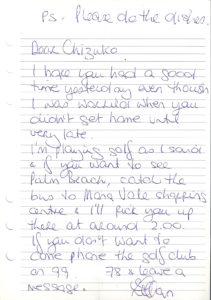 PS. Please do the dishes.
Dear Chizuko.
I hope you had a good
time yesterday even though
I was worried when you
didn't get home until
very late.
I'm playing golf as I said
& if you want to see
Palm Beach, catch the
bus to Mona Vale shopping
centre & I'll pick you up
there at around 2.00.
If you don't want to
come phone the golf club
on 99 78 & leave a
message.